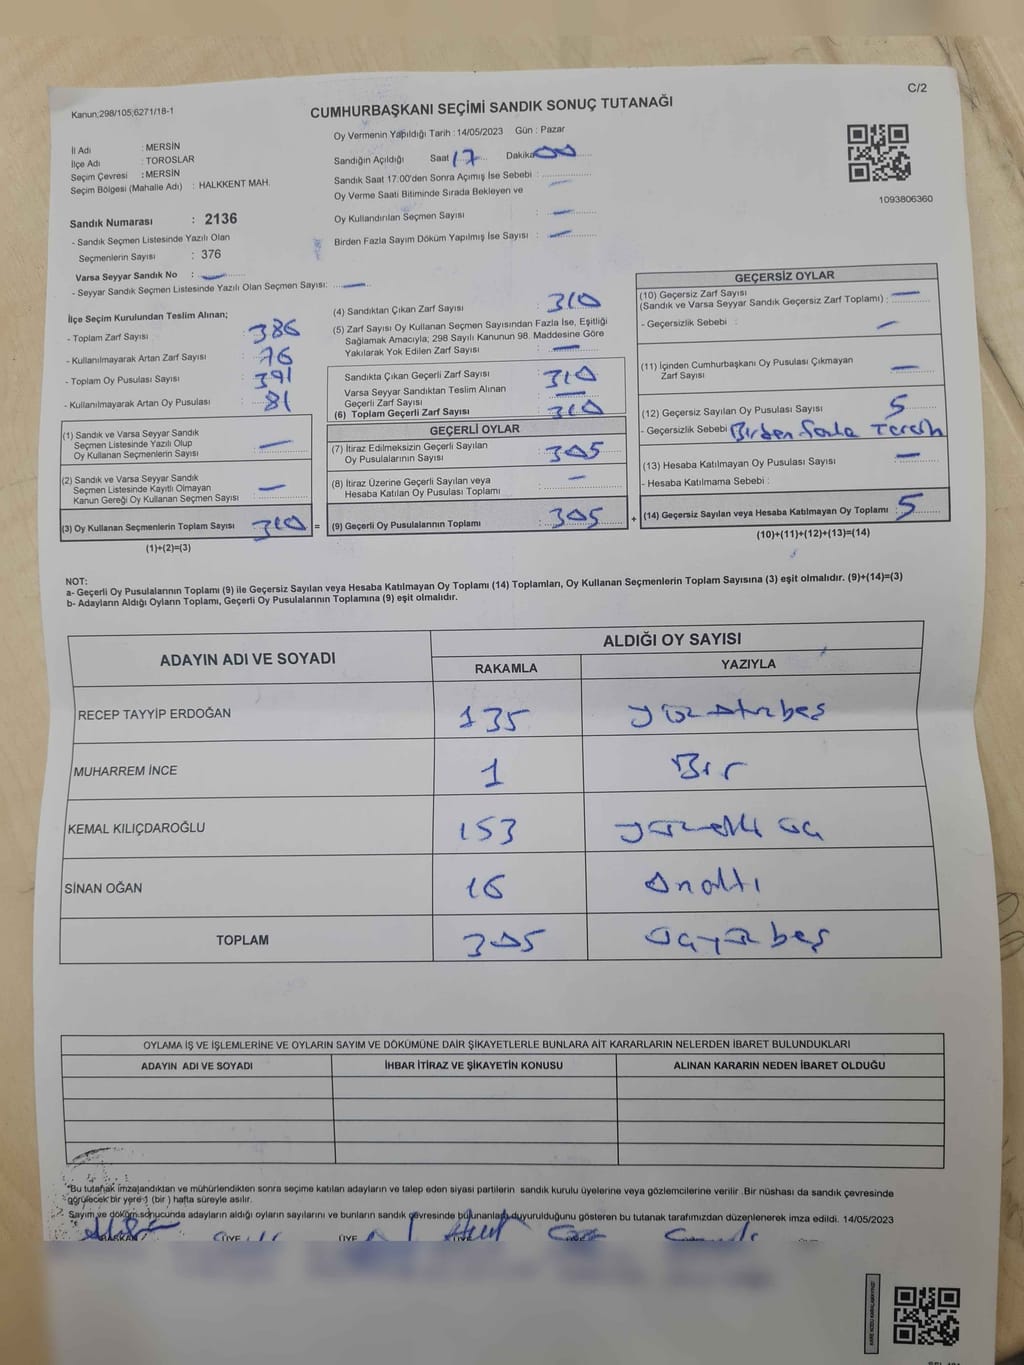 Kanun;298/105;6271/18-1
C/2
CUMHURBAŞKANI SEÇİMİ SANDIK SONUÇ TUTANAĞI
Oy Vermenin Yapıldığı Tarih : 14/05/2023 Gün : Pazar
İl Adı : MERSİN
İlçe Adı : TOROSLAR
Seçim Çevresi : MERSİN
Seçim Bölgesi (Mahalle Adı) : HALKKENT MAH.
Sandığın Açıldığı Saat 17 Dakika 00
Sandık Saat 17:00'den Sonra Açımış İse Sebebi :
Oy Verme Saati Bitiminde Sırada Bekleyen ve
Oy Kullandırılan Seçmen Sayısı : —
Birden Fazla Sayım Döküm Yapılmış İse Sayısı : —
1093806360
Sandık Numarası : 2136
- Sandık Seçmen Listesinde Yazılı Olan
Seçmenlerin Sayısı : 376
Varsa Seyyar Sandık No : —
- Seyyar Sandık Seçmen Listesinde Yazılı Olan Seçmen Sayısı: —
İlçe Seçim Kurulundan Teslim Alınan;
- Toplam Zarf Sayısı : 386
- Kullanılmayarak Artan Zarf Sayısı : 76
- Toplam Oy Pusulası Sayısı : 391
- Kullanılmayarak Artan Oy Pusulası : 81
(1) Sandık ve Varsa Seyyar Sandık
Seçmen Listesinde Yazılı Olup
Oy Kullanan Seçmenlerin Sayısı : —
(2) Sandık ve Varsa Seyyar Sandık
Seçmen Listesinde Kayıtlı Olmayan
Kanun Gereği Oy Kullanan Seçmen Sayısı : —
(3) Oy Kullanan Seçmenlerin Toplam Sayısı : 310 =
(1)+(2)=(3)
(4) Sandıktan Çıkan Zarf Sayısı : 310
(5) Zarf Sayısı Oy Kullanan Seçmen Sayısından Fazla İse, Eşitliği
Sağlamak Amacıyla; 298 Sayılı Kanunun 98. Maddesine Göre
Yakılarak Yok Edilen Zarf Sayısı : —
Sandıkta Çıkan Geçerli Zarf Sayısı : 310
Varsa Seyyar Sandıktan Teslim Alınan
Geçerli Zarf Sayısı : —
(6) Toplam Geçerli Zarf Sayısı : 310
GEÇERLİ OYLAR
(7) İtiraz Edilmeksizin Geçerli Sayılan
Oy Pusulalarının Sayısı : 305
(8) İtiraz Üzerine Geçerli Sayılan veya
Hesaba Katılan Oy Pusulası Toplamı : —
(9) Geçerli Oy Pusulalarının Toplamı : 305 +
GEÇERSİZ OYLAR
(10) Geçersiz Zarf Sayısı
(Sandık ve Varsa Seyyar Sandık Geçersiz Zarf Toplamı) : —
- Geçersizlik Sebebi : —
(11) İçinden Cumhurbaşkanı Oy Pusulası Çıkmayan
Zarf Sayısı : —
(12) Geçersiz Sayılan Oy Pusulası Sayısı : 5
- Geçersizlik Sebebi : Birden Fazla Tercih
(13) Hesaba Katılmayan Oy Pusulası Sayısı : —
- Hesaba Katılmama Sebebi :
(14) Geçersiz Sayılan veya Hesaba Katılmayan Oy Toplamı : 5
(10)+(11)+(12)+(13)=(14)
NOT:
a- Geçerli Oy Pusulalarının Toplamı (9) ile Geçersiz Sayılan veya Hesaba Katılmayan Oy Toplamı (14) Toplamları, Oy Kullanan Seçmenlerin Toplam Sayısına (3) eşit olmalıdır. (9)+(14)=(3)
b- Adayların Aldığı Oyların Toplamı, Geçerli Oy Pusulalarının Toplamına (9) eşit olmalıdır.
ADAYIN ADI VE SOYADI
ALDIĞI OY SAYISI
RAKAMLA YAZIYLA
RECEP TAYYİP ERDOĞAN 135 yüzotuzbeş
MUHARREM İNCE 1 Bir
KEMAL KILIÇDAROĞLU 153 yüzelli üç
SİNAN OĞAN 16 Onaltı
TOPLAM 305 üçyüz beş
OYLAMA İŞ VE İŞLEMLERİNE VE OYLARIN SAYIM VE DÖKÜMÜNE DAİR ŞİKAYETLERLE BUNLARA AİT KARARLARIN NELERDEN İBARET BULUNDUKLARI
ADAYIN ADI VE SOYADI İHBAR İTİRAZ VE ŞİKAYETİN KONUSU ALINAN KARARIN NEDEN İBARET OLDUĞU
*Bu tutanak imzalandıktan ve mühürlendikten sonra seçime katılan adayların ve talep eden siyasi partilerin sandık kurulu üyelerine veya gözlemcilerine verilir .Bir nüshası da sandık çevresinde
görülecek bir yere 1 (bir ) hafta süreyle asılır.
Sayım ve döküm sonucunda adayların aldığı oyların sayılarını ve bunların sandık çevresinde bulunanlara duyurulduğunu gösteren bu tutanak tarafımızdan düzenlenerek imza edildi. 14/05/2023
BAŞKAN ÜYE ÜYE ÜYE